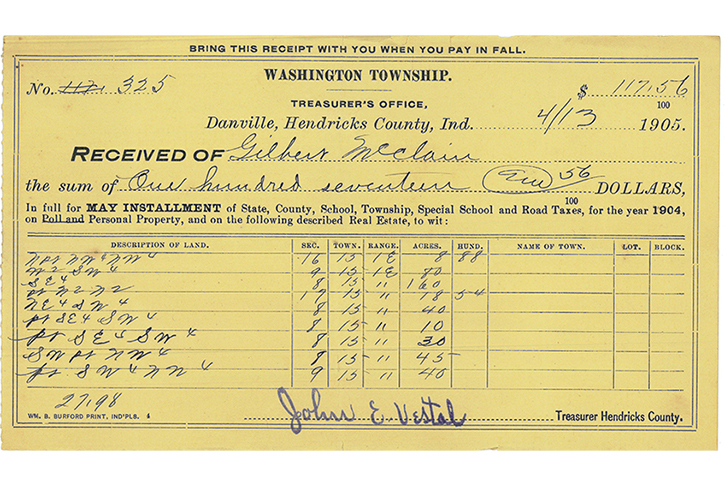 BRING THIS RECEIPT WITH YOU WHEN YOU PAY IN FALL.
No. 117. 325 WASHINGTON TOWNSHIP. $ 117.56
TREASURER'S OFFICE, 100
Danville, Hendricks County, Ind. 4/13 1905.
RECEIVED OF Gilbert McClain
the sum of One hundred seventeen 56 DOLLARS,
100
In full for MAY INSTALLMENT of State, County, School, Township, Special School and Road Taxes, for the year 1904,
on Poll and Personal Property, and on the following described Real Estate, to wit:
DESCRIPTION OF LAND. SEC. TOWN. RANGE. ACRES. HUND. NAME OF TOWN. LOT. BLOCK.
NW 4 NW 4 16 15 1E 8 88
W 2 SW 4 9 15 1E 80
SE 4 8 15 " 160
pt N 2 N 2 17 15 " 18 54
NE 4 SW 4 8 15 " 40
pt SE 4 SW 4 8 15 " 10
pt SE 4 SW 4 8 15 " 30
SW pt NW 4 8 15 " 45
pt SW 4 NW 4 9 15 " 40
27.98
WM. B. BURFORD PRINT, IND'PLS. John E. Vestal Treasurer Hendricks County.